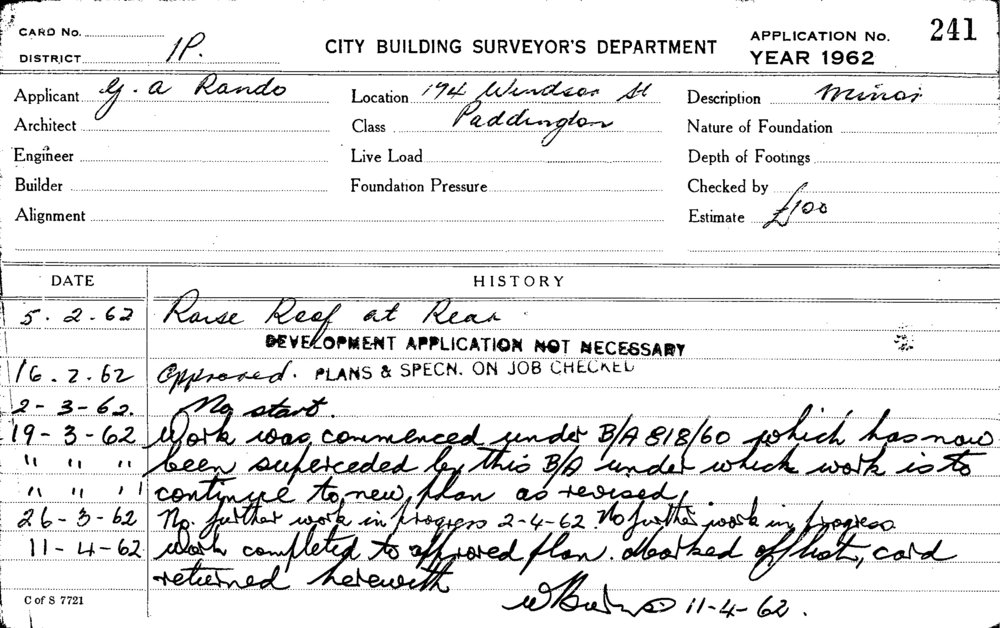 CARD No.
DISTRICT 1P.
CITY BUILDING SURVEYOR'S DEPARTMENT
APPLICATION No. 241
YEAR 1962
Applicant G. A Rando
Location 194 Windsor St
Paddington
Description Minor
Architect
Class
Nature of Foundation
Engineer
Live Load
Depth of Footings
Builder
Foundation Pressure
Checked by
Alignment
Estimate £100
DATE HISTORY
5. 2. 62 Raise Roof at Rear.
DEVELOPMENT APPLICATION NOT NECESSARY
16. 2. 62 Approved. PLANS & SPECN. ON JOB CHECKED
2 - 3 - 62. No start.
19 - 3 - 62 Work was commenced under B/A 818/60 which has now
" " " been superceded by this B/A under which work is to
" " " continue to new plan as revised
26 - 3 - 62 No further work in progress 2-4-62 No further work in progress
11 - 4 - 62 Work completed to approved plan. Marked off list, card
returned herewith
11-4-62.
C of S 7721